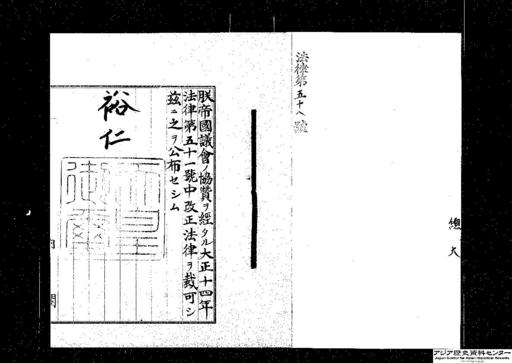 法律第五十八號
朕帝國議會ノ協贊ヲ經タル大正十四年
法律第五十一號中改正法律ヲ裁可シ
茲ニ之ヲ公布セシム
裕仁
天皇
御璽
アジア歴史資料センター
Japan Center for Asian Historical Records